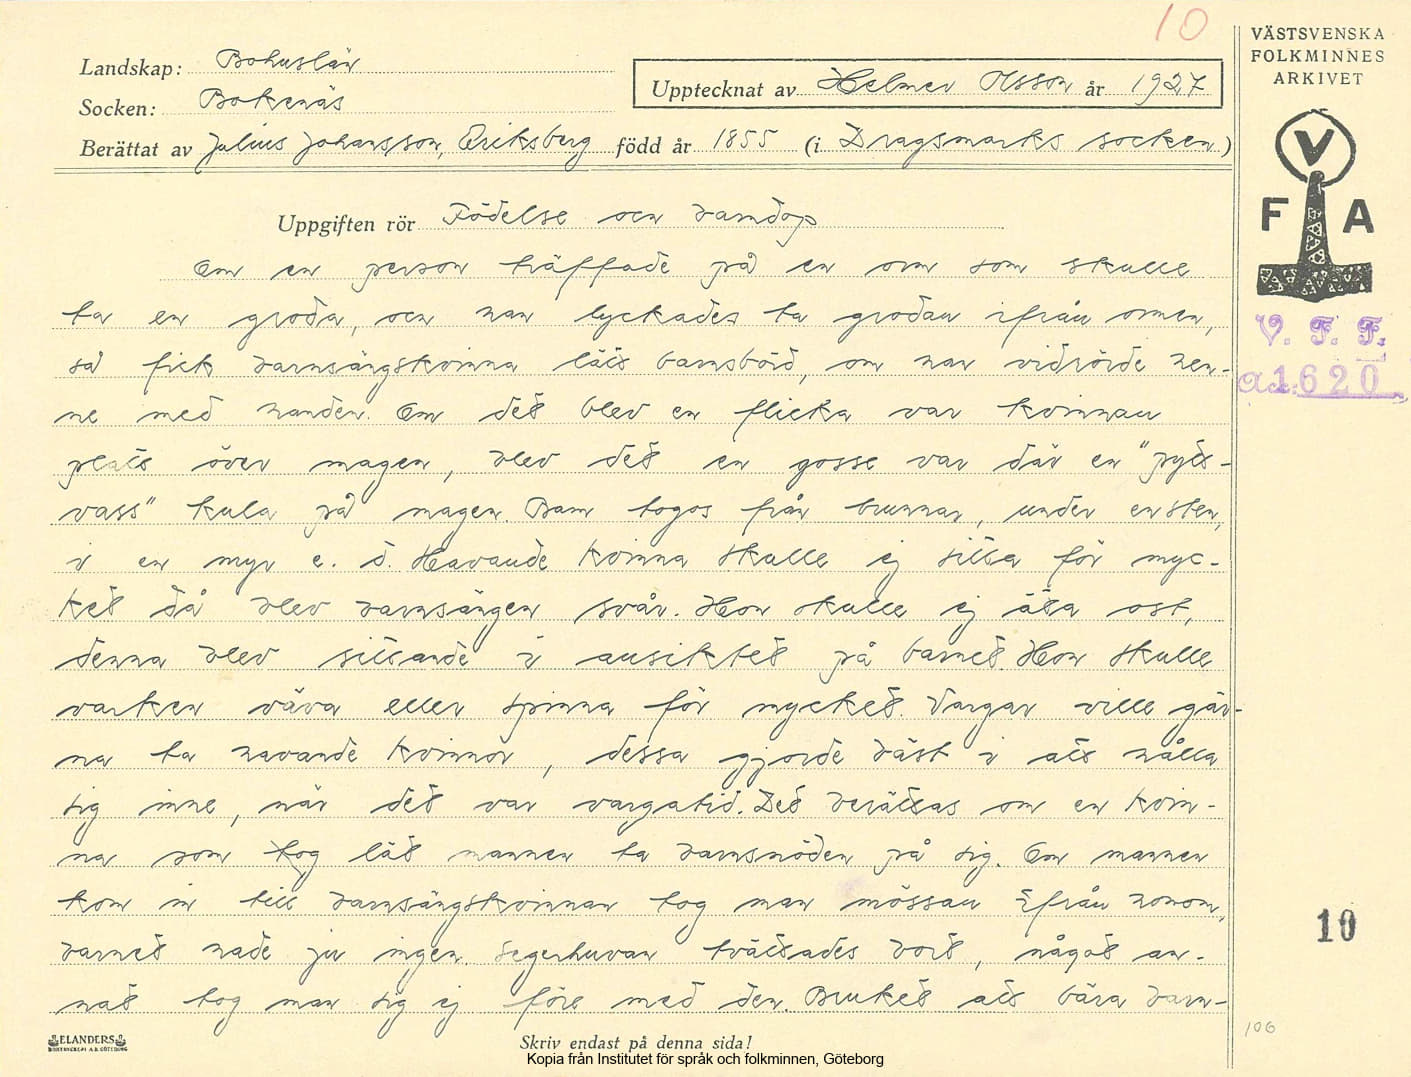 10
VÄSTSVENSKA
FOLKMINNES
ARKIVET
Landskap: Bohuslän
Upptecknat av Helmer Olsson år 1927
Socken: Bokenäs
Berättat av Julius Johansson, Eriksberg född år 1855 (i Dragsmarks socken)
V
F A
V. F. F.
Acc: 1620
Uppgiften rör Födelse och barndop
Om en person träffade på en orm som skulle
ta en groda, och han lyckades ta grodan ifrån ormen,
så fick barnsängskvinna lätt barnsbörd, om han vidrörde hen-
ne med handen. Om det blev en flicka var kvinnan
plats över magen, blev det en gosse var där en "pytt-
vass" kula på magen. Barn togos från brunnar, under en sten,
i en myr e. d. Havande kvinna skulle ej sitta för myc-
ket då blev barnsängen svår. Hon skulle ej äta ost,
denna blev sittande i ansiktet på barnet. Hon skulle
varken väva eller spinna för mycket. Vargar ville gär-
na ta havande kvinnor, dessa gjorde bäst i att hålla
sig inne, när det var vargatid. Det berättas om en kvin-
na som tog lät mannen ta barnsnöden på sig. Om mannen
kom in till barnsängskvinnan tog man mössan ifrån honom,
barnet hade ju ingen. Segerhuvan tvättades bort, något an-
nat tog man sig ej före med den. Bruket att bära barn-
10
106
ELANDERS
BOKTRYCKERI A.B. GÖTEBORG
Skriv endast på denna sida!
Kopia från Institutet för språk och folkminnen, Göteborg